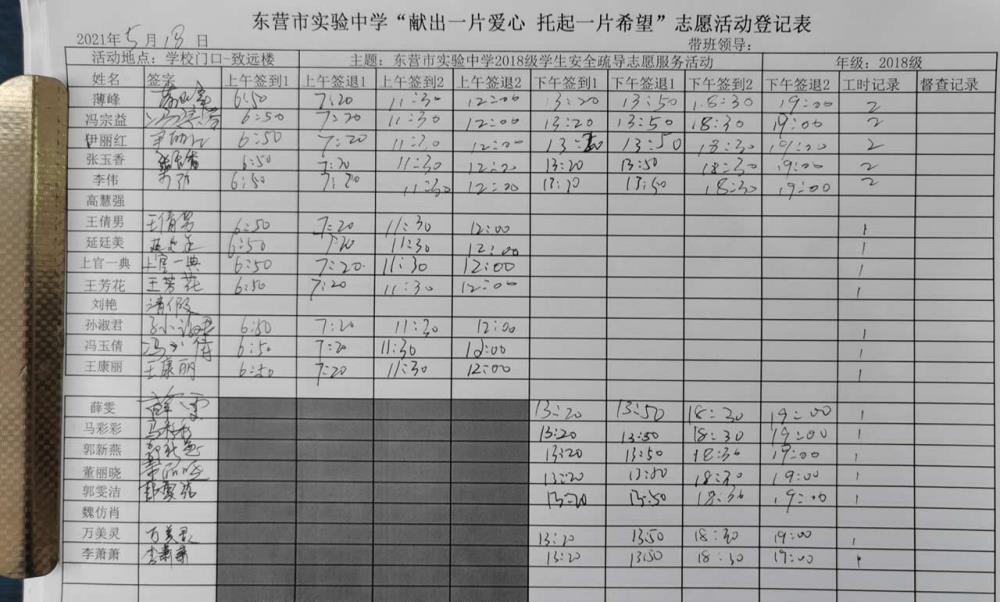 东营市实验中学“献出一片爱心 托起一片希望”志愿活动登记表
2021年5月13日 带班领导:
活动地点: 学校门口-致远楼 主题: 东营市实验中学2018级学生安全疏导志愿服务活动 年级: 2018级
姓名 签字 上午签到1 上午签退1 上午签到2 上午签退2 下午签到1 下午签退1 下午签到2 下午签退2 工时记录 督查记录
薄峰 6:50 7:20 11:30 12:00 13:20 13:50 18:30 19:00 2
冯宗益 6:50 7:20 11:30 12:00 13:20 13:50 18:30 19:00 2
伊丽红 6:50 7:20 11:30 12:00 13:20 13:50 18:30 19:00 2
张玉香 张玉香 6:50 7:20 11:30 12:20 13:20 13:50 18:30 19:00 2
李伟 6:50 7:20 11:30 12:20 13:20 13:50 18:30 19:00 2
高慧强
王倩男 王倩男 6:50 7:20 11:30 12:00 1
延廷美 6:50 7:20 11:30 12:00 1
上官一典 上官一典 6:50 7:20 11:30 12:00 1
王芳花 王芳花 6:50 7:20 11:30 12:00 1
刘艳 请假
孙淑君 6:50 7:20 11:30 12:00 1
冯玉倩 6:50 7:20 11:30 12:00 1
王康丽 王康丽 6:50 7:20 11:30 12:00 1
薛雯 薛雯 13:20 13:50 18:30 19:00 1
马彩彩 马彩彩 13:20 13:50 18:30 19:00 1
郭新燕 郭新燕 13:20 13:50 18:30 19:00 1
董丽晓 董丽晓 13:20 13:50 18:30 19:00 1
郭雯洁 郭雯洁 13:20 13:50 18:30 19:00 1
魏仿肖
万美灵 万美灵 13:20 13:50 18:30 19:00 1
李萧萧 李萧萧 13:20 13:50 18:30 19:00 1